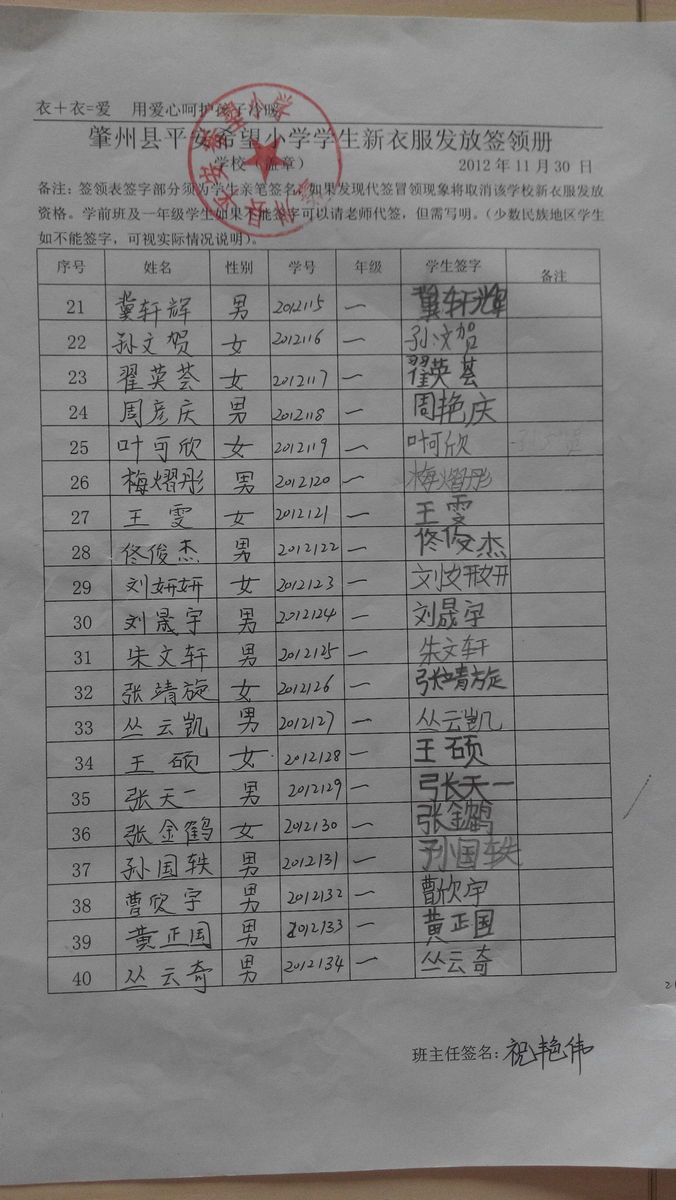 衣+衣=爱 用爱心呵护孩子冷暖
肇州县平安希望小学学生新衣服发放签领册
学校(盖章) 2012年11月30日
备注:签领表签字部分须为学生亲笔签名,如果发现代签冒领现象将取消该学校新衣服发放
资格。学前班及一年级学生如果不能签字可以请老师代签,但需写明。(少数民族地区学生
如不能签字,可视实际情况说明)。
序号 姓名 性别 学号 年级 学生签字 备注
21 冀轩辉 男 2012115 一 冀轩辉
22 孙文贺 女 2012116 一 孙文贺
23 翟英荟 女 2012117 一 翟英荟
24 周彦庆 男 2012118 一 周艳庆
25 叶可欣 女 2012119 一 叶可欣
26 梅熠彤 男 2012120 一 梅熠彤
27 王雯 女 2012121 一 王雯
28 佟俊杰 男 2012122 一 佟俊杰
29 刘妍妍 女 2012123 一 刘妍妍
30 刘晟宇 男 2012124 一 刘晟宇
31 朱文轩 男 2012125 一 朱文轩
32 张靖旋 女 2012126 一 张靖旋
33 丛云凯 男 2012127 一 丛云凯
34 王硕 女 2012128 一 王硕
35 张天一 男 2012129 一 张天一
36 张金鹤 女 2012130 一 张金鹤
37 孙国轶 男 2012131 一 孙国轶
38 曹欣宇 男 2012132 一 曹欣宇
39 黄正国 男 2012133 一 黄正国
40 丛云奇 男 2012134 一 丛云奇
班主任签名:祝艳伟